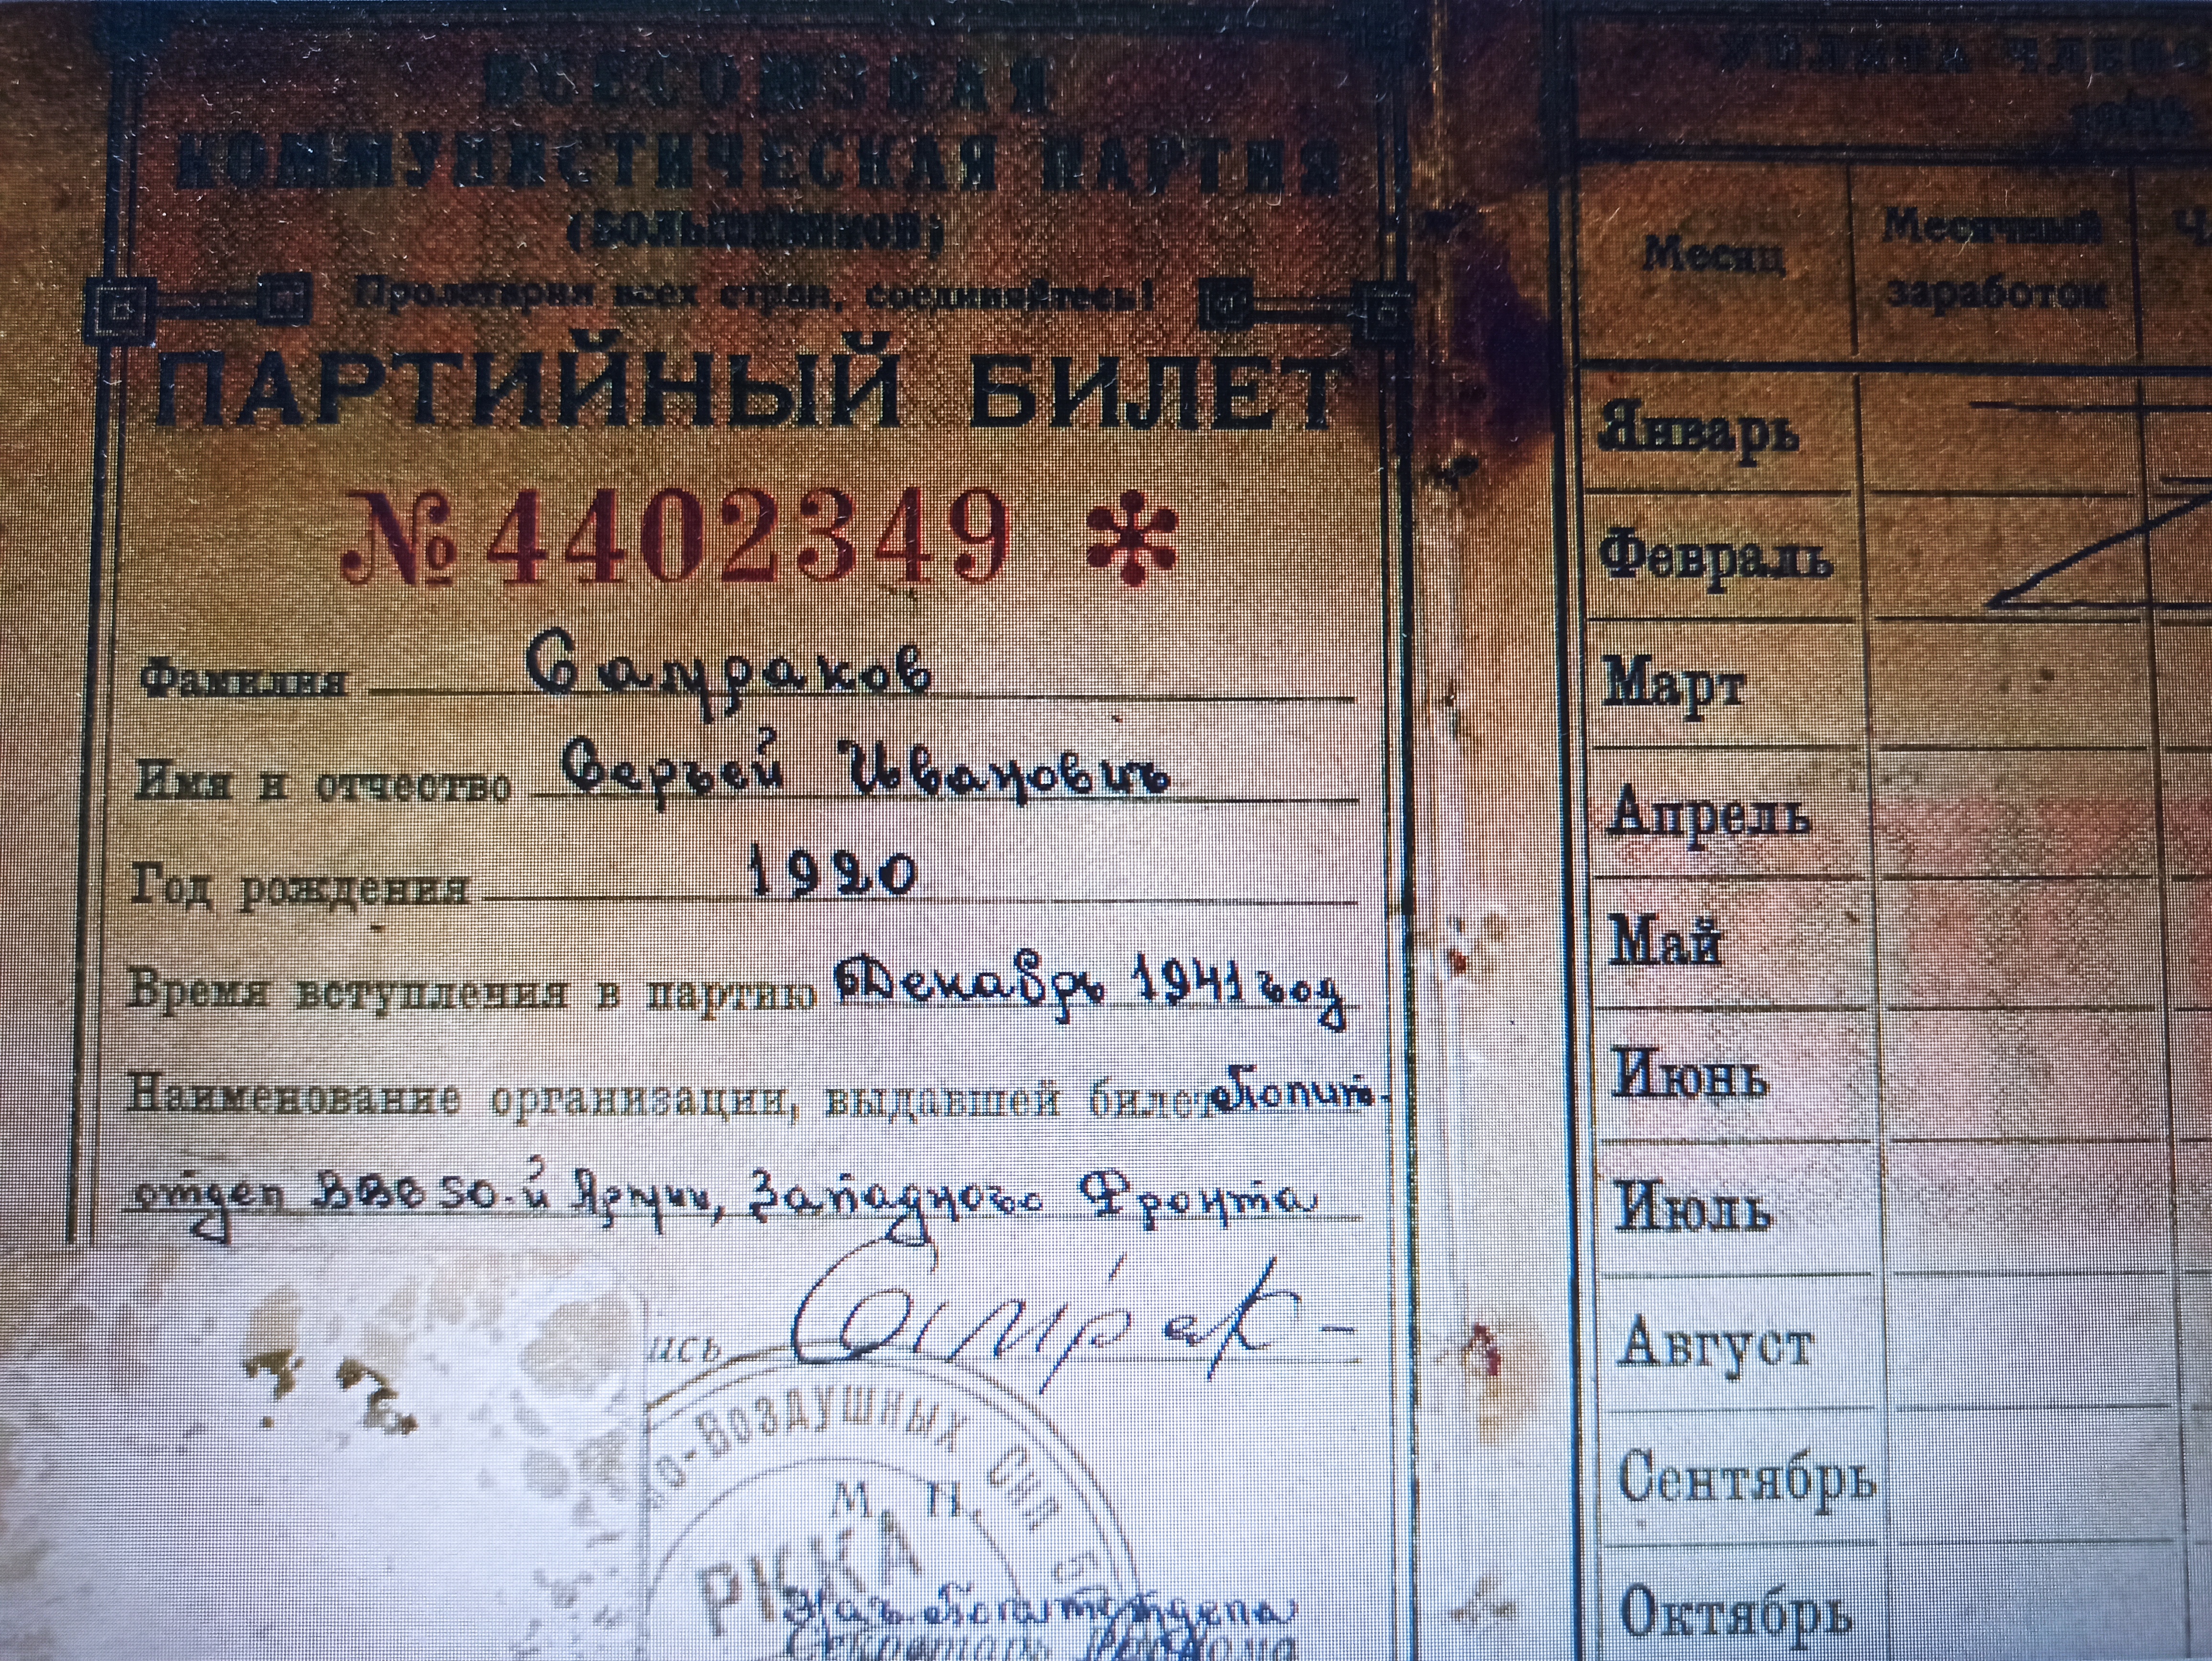 ВСЕСОЮЗНАЯ
КОММУНИСТИЧЕСКАЯ ПАРТИЯ
(БОЛЬШЕВИКОВ)
Пролетарии всех стран, соединяйтесь!
ПАРТИЙНЫЙ БИЛЕТ
№ 4402349 *
Фамилия Саураков
Имя и отчество Сергей Иванович
Год рождения 1920
Время вступления в партию Декабрь 1941 год
Наименование организации, выдавшей билет Полит-
отдел ВВС 50-й Армии, Западного Фронта
ись
о-Воздушных Сил
М. П.
РККА
Нач. Политотдела
Секретарь
УПЛАТА ЧЛЕНС
Месяц
Месячный заработок
Январь
Февраль
Март
Апрель
Май
Июнь
Июль
Август
Сентябрь
Октябрь